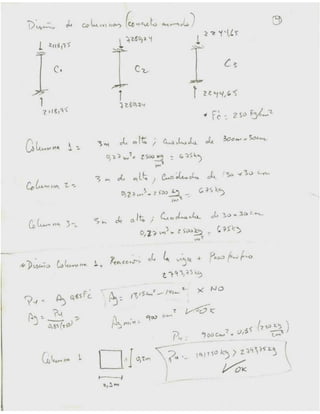 Diseño de columnas (concreto armado)
2118,75
C1
2118,75
C2
2244,65
C3
2244,65
• F'c: 250 kg/cm²
Columna 1: 3m de alto; cuadrada de 30cm x 30cm
0,27m³ x 2500 kg/m³ = 675 kg
Columna 2: 3m de alto; cuadrada de 30 x 30 cm
0,27m³ x 2500 kg/m³ = 675 kg
Columna 3: 3m de alto; cuadrada de 30x30cm
0,27m³ x 2500 kg/m³ = 675 kg
* Diseño Columna 1. Reacción de la viga + Peso Propio
2793,75 kg
Pu = Ag 0,85 F'c
x NO
Ag = Pu / 0,85 (250) =
Ag min = 900 cm² OK
Pu = 900cm² . 0,85 (250 kg/cm²)
Columna 1
0,3m
Pu = 191250 kg > 2793,75 kg
OK